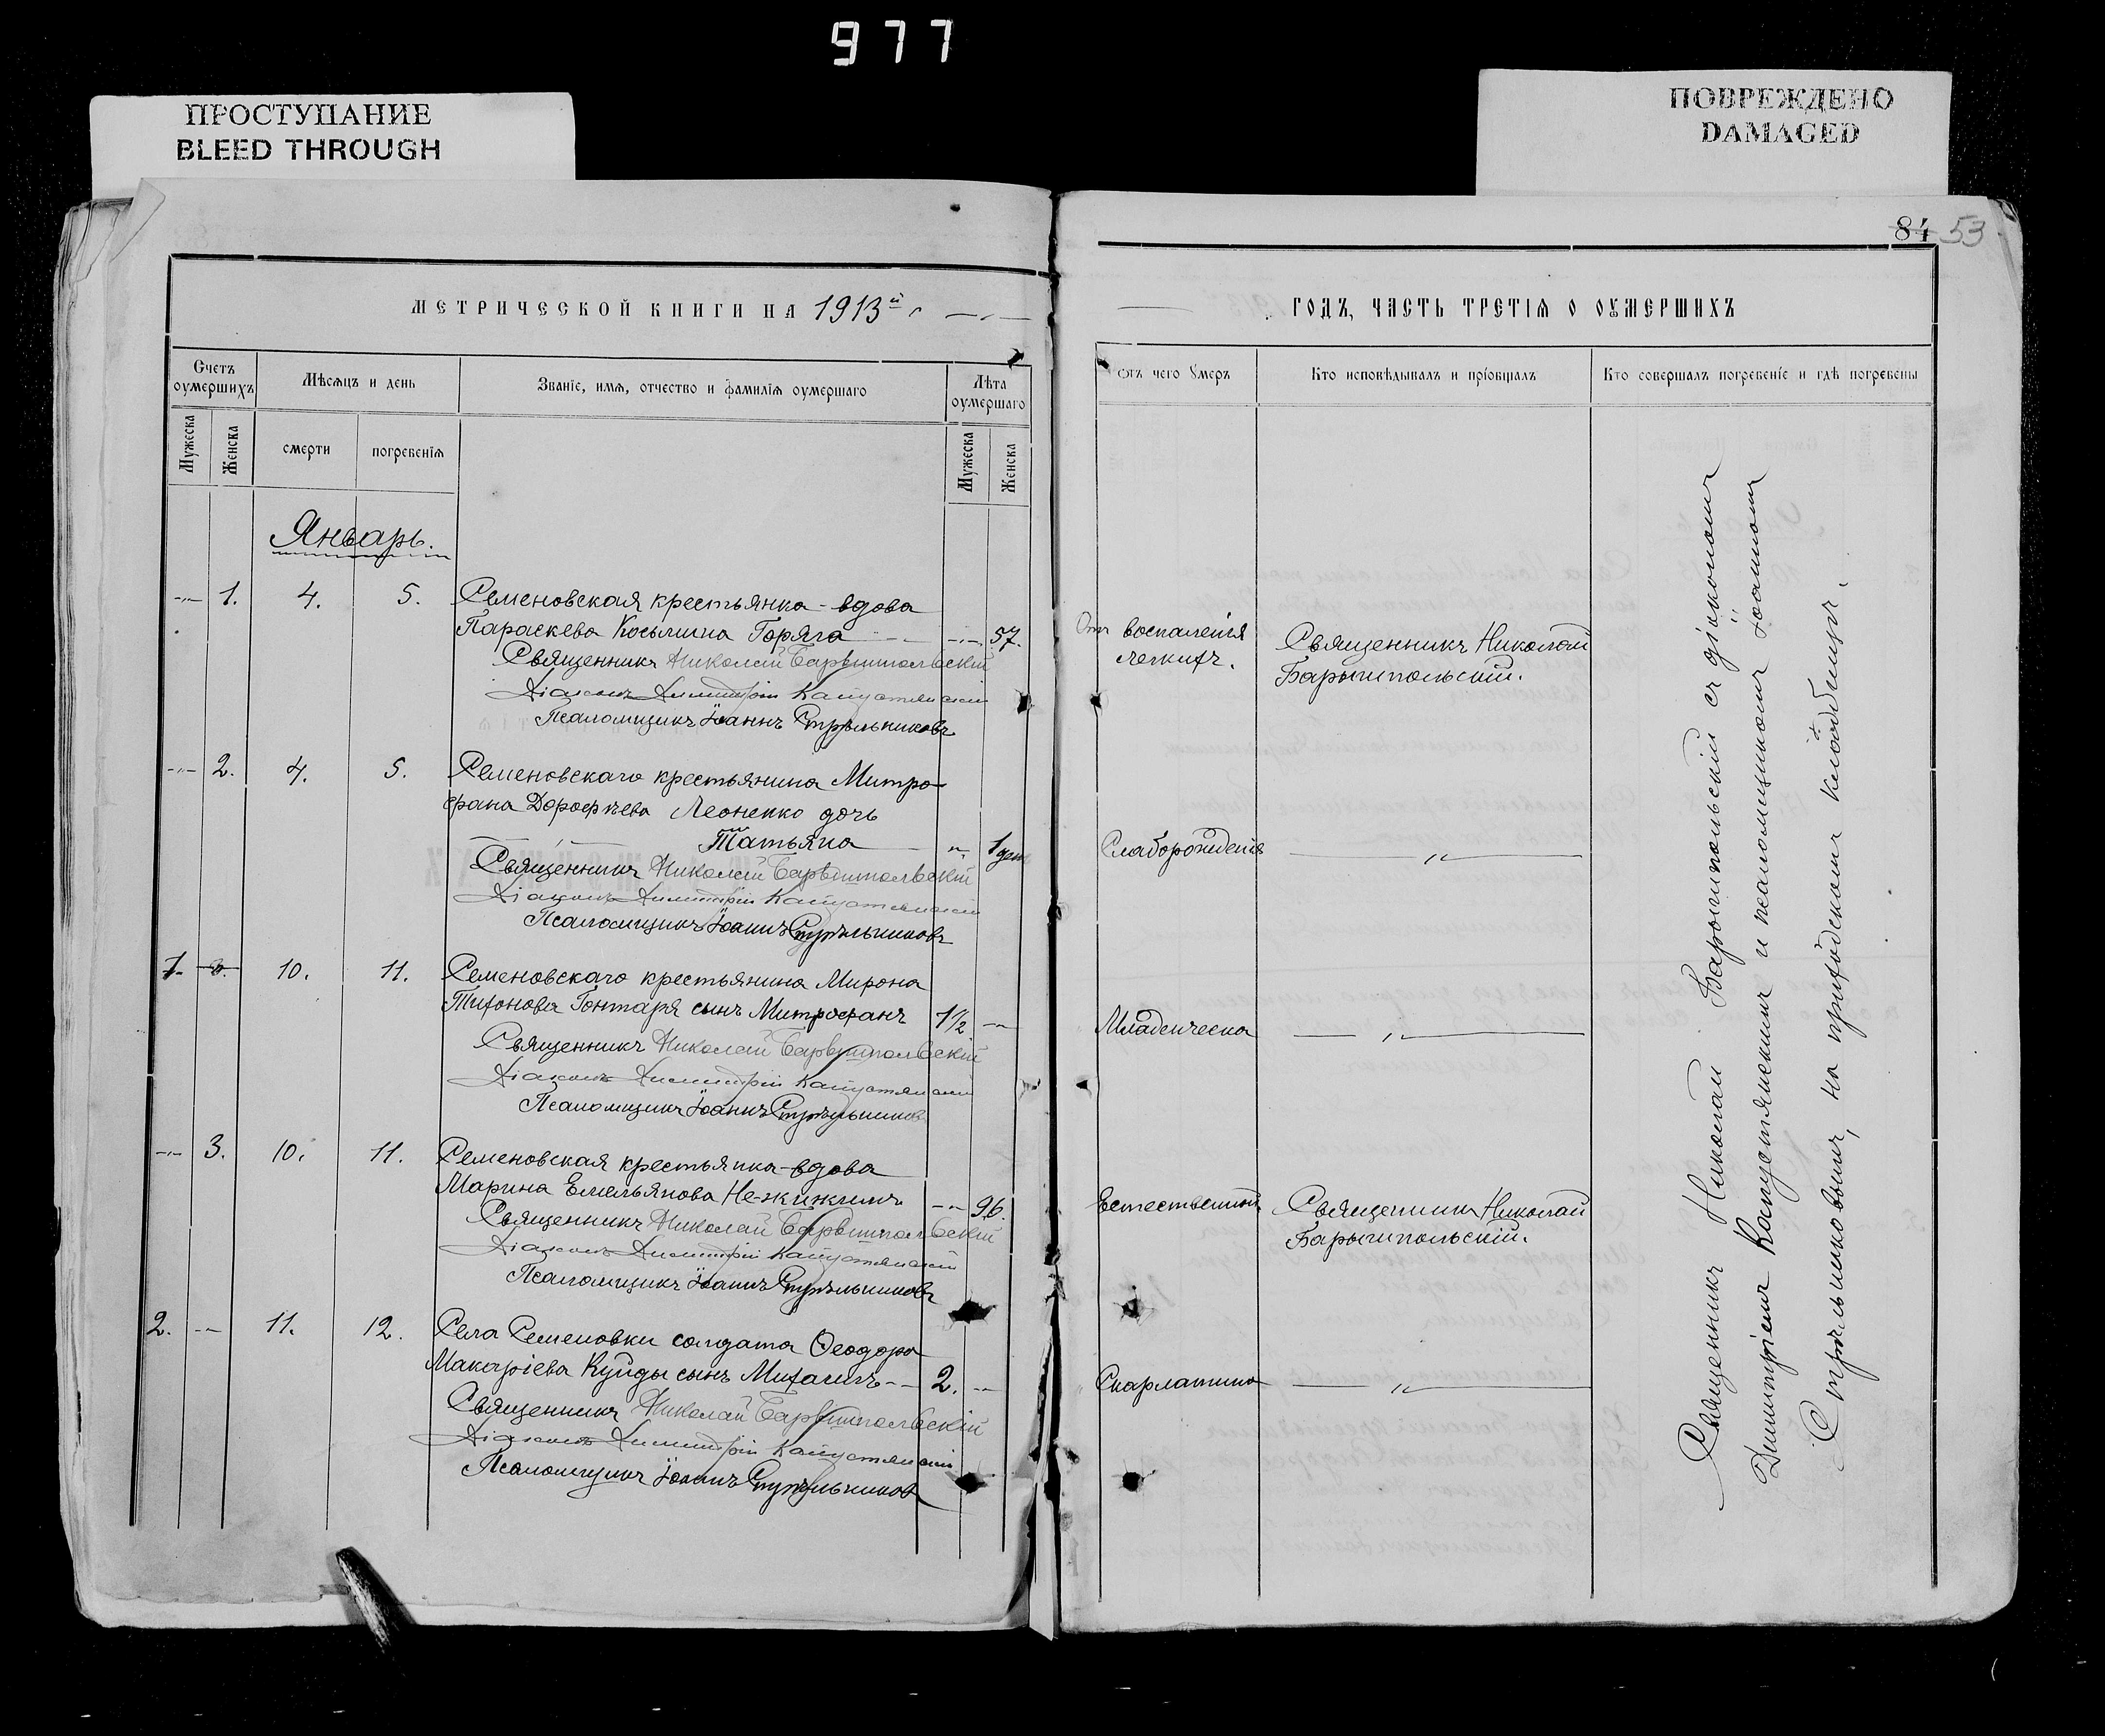 977
ПРОСТУПАНИЕ
BLEED THROUGH
ПОВРЕЖДЕНО
DAMAGED
84 53
МЕТРИЧЕСКОЙ КНИГИ НА 1913й
Счетъ оумершихъ
Мѣсяцъ и день
Званіе, имя, отчество и фамилія оумершаго
Лѣта оумершаго
Мужеска
Женска
смерти
погребенія
Мужеска
Женска
Январь.
1. 4. 5. Семеновская крестьянка-вдова
Параскева Косьмина Горяга 57.
Священникъ Николай Барышпольскій
Діаконъ Димитрій Капустянскій
Псаломщикъ Іоаннъ Стрѣльниковъ
2. 4. 5. Семеновскаго крестьянина Митро-
фана Дорофѣева Леоненко дочь
Татьяна 1 дня
Священникъ Николай Барышпольскій
Діаконъ Димитрій Капустянскій
Псаломщикъ Іоаннъ Стрѣльниковъ
1. 10. 11. Семеновскаго крестьянина Мирона
Тихонова Гонтаря сынъ Митрофанъ 1½
Священникъ Николай Барышпольскій
Діаконъ Димитрій Капустянскій
Псаломщикъ Іоаннъ Стрѣльниковъ
3. 10. 11. Семеновская крестьянка-вдова
Марина Емельянова Не-жижимъ 96.
Священникъ Николай Барышпольскій
Діаконъ Димитрій Капустянскій
Псаломщикъ Іоаннъ Стрѣльниковъ
2. 11. 12. Села Семеновки солдата Ѳеодора
Макаріева Куйды сынъ Михаилъ 2.
Священникъ Николай Барышпольскій
Діаконъ Димитрій Капустянскій
Псаломщикъ Іоаннъ Стрѣльниковъ
ГОДЪ, ЧАСТЬ ТРЕТІЯ О ОУМЕРШИХЪ
Отъ чего Умеръ
Кто исповѣдывалъ и пріобщалъ
Кто совершалъ погребеніе и гдѣ погребены
Отъ воспаленія
легкихъ.
Священникъ Николай
Барышпольскій.
Слаборожденія
Младенческа
Естественной
Священникъ Николай
Барышпольскій.
Скарлатина
Священникъ Николай Барышпольскій съ діакономъ
Димитріемъ Капустянскимъ и псаломщикомъ Іоанномъ
Стрѣльниковымъ, на приходскомъ кладбищѣ.